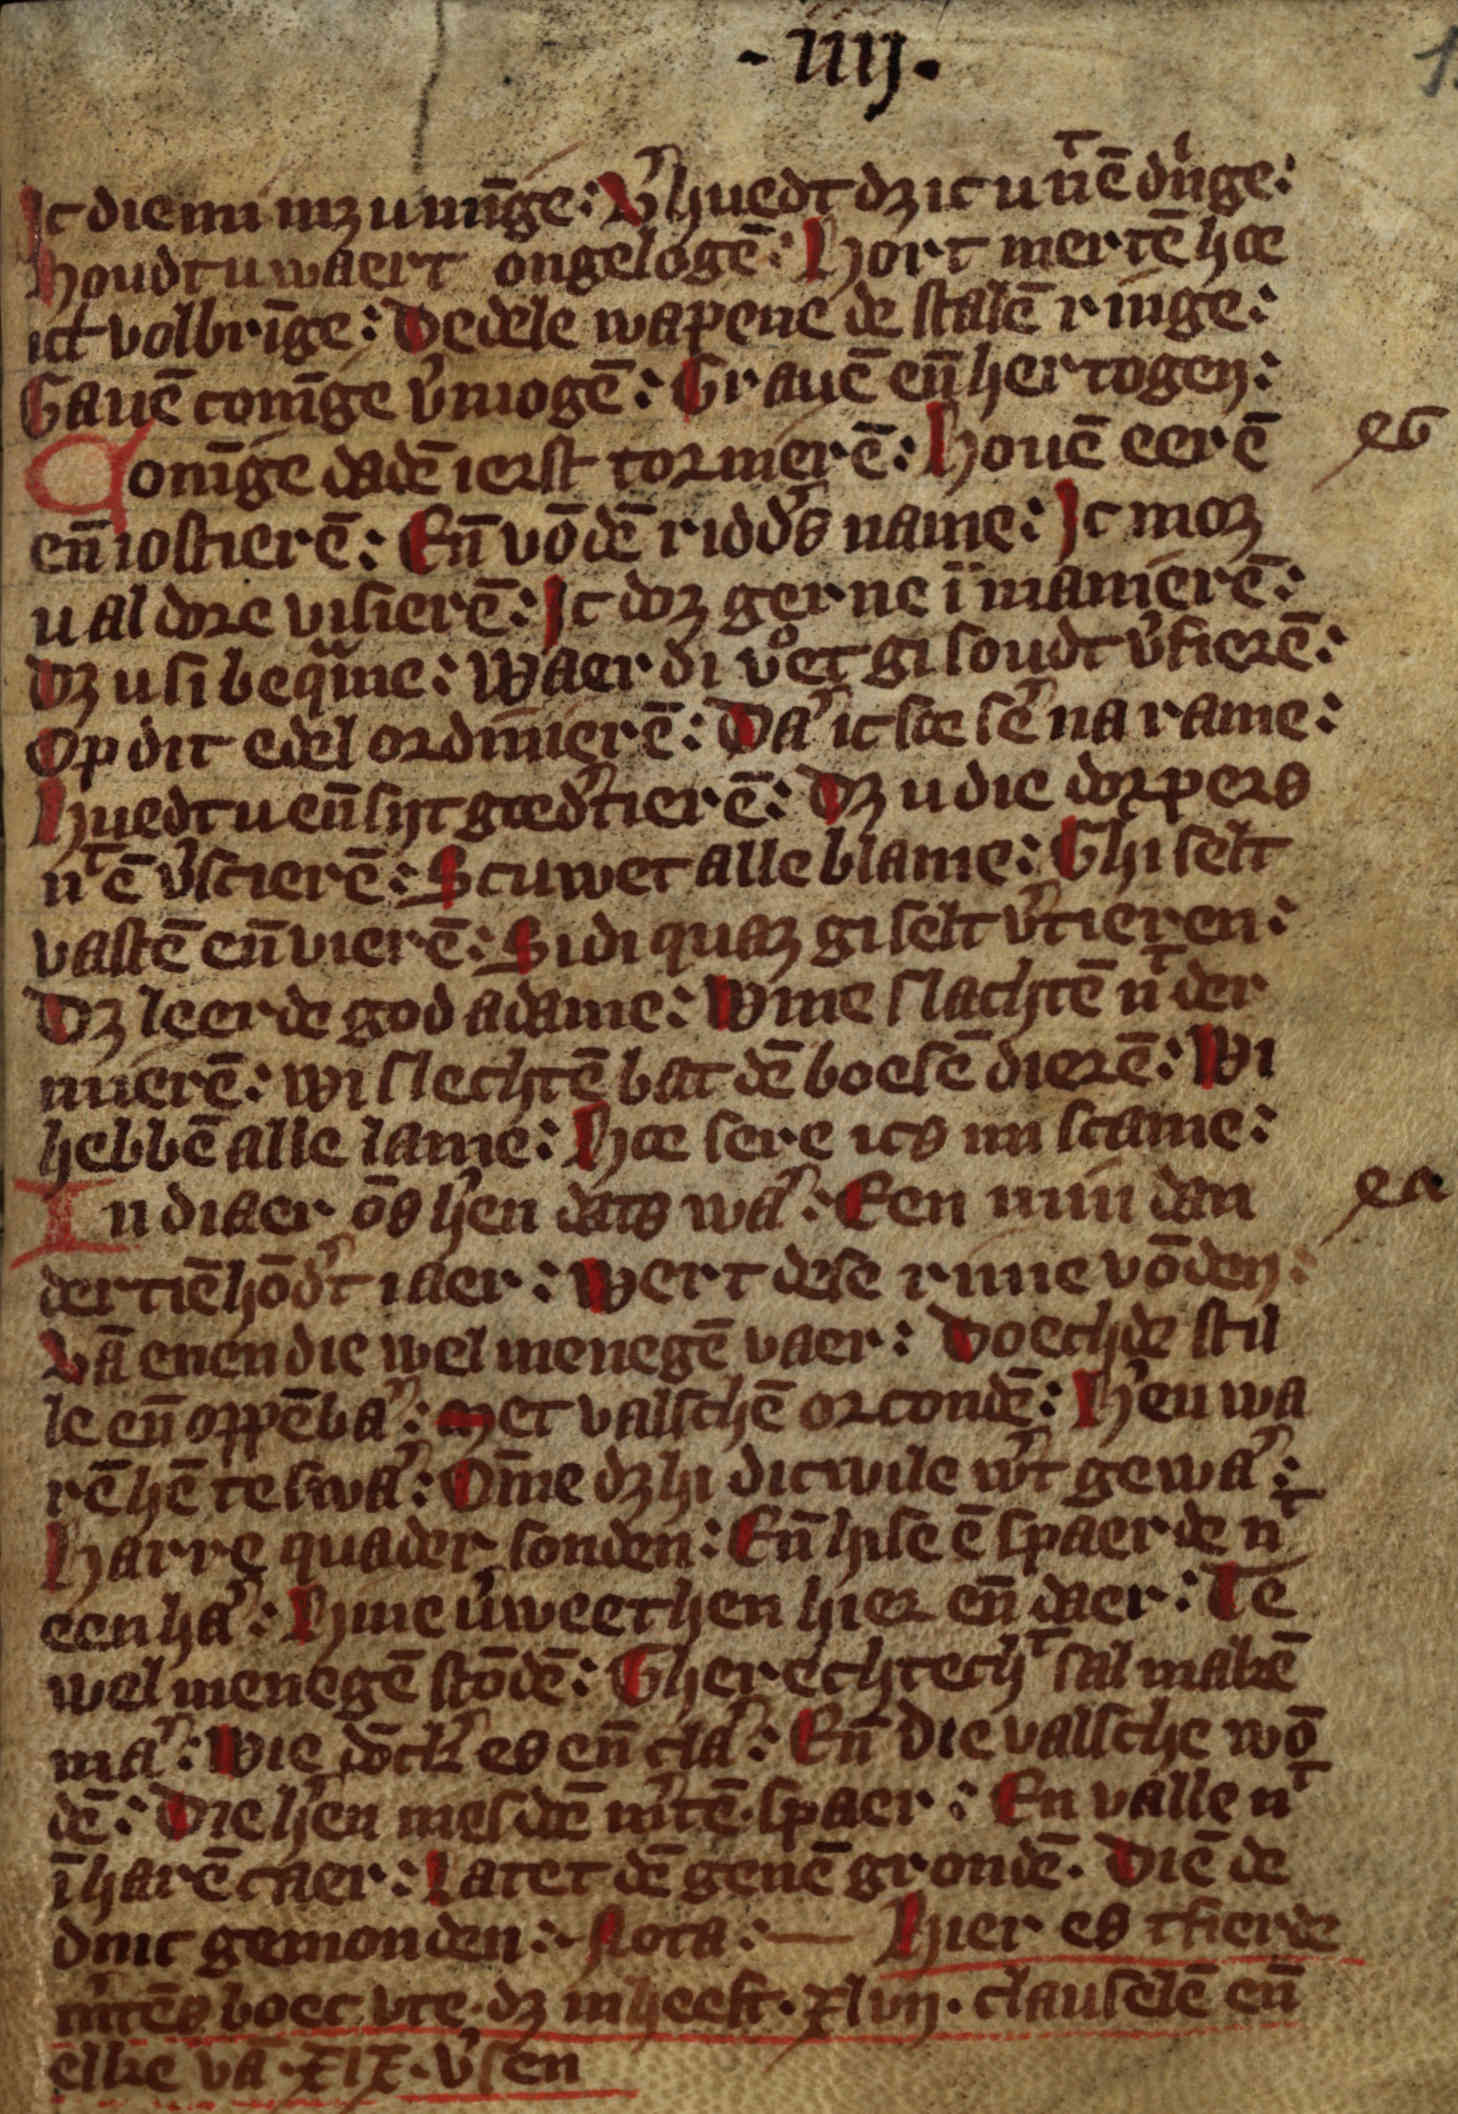 - iiij .
Ic die mi mʒ u mīge : V᷑huedt dʒ ic u nͭē dīge :
houdt u waert ongelogē : Hort mertē hoe
ict volbrīge : Dedele wapene de stalē ringe :
Gauē conīge v᷑mogē : Grauē eñ hertogen :
Conīge dadē ierst tormierē : Houē eerē
eñ iostierē : Eñ vōdē ridd᷑s name : Ic moʒ
u al dore visierē : Ic doʒ gerne ī manierē :
dʒ u si beqͣme : Waer di vͦet gi soudt v᷑sierē :
Op dit edel ordinierē : Da᷑ ic soe se᷑ na rame :
Huedt u eñ sijt goed᷑tierē : Dʒ u die dorpers
nͭē v᷑scierē : Scuwet alle blame : Ghi selt
vastē eñ vierē : Sidi quaʒ gi selt v᷑tieren :
Dʒ leerde god adame : Wine slachtē nͭ der
mierē : wi slechtē bat dē boesē dierē : Wi
hebbē alle lame : Hoe sere ics mi scame :
In diaer ōs h᷑en dats wa᷑ : Een min dan
dertiēhōd᷑t iaer : Wert dese rime vōden :
Vā enen die wel menegē vaer : Doechde stil
le eñ oppēba᷑ : Met valschē orcondē : H᷑en wa
rē hē te swa᷑ : Om̄e dʒ hi dicwile w᷑t gewa᷑ :
Harre quader sonden : Eñ hise ē spaerde nͭ
een ha᷑ : Hine v᷑weet hen hier eñ daer : Te
wel menegē stōdē : Gherechtechͭ sal makē
ma᷑ : Wie dōck᷑ es eñ cla᷑ : Eñ die valsche wō
dē : Die h᷑en mesdē m᷑tē spaer : En valle nͭ
ī harē caer : Latet dē genē grondē . Diē de
dinc gemonden : Nota : — Hier es tfierde
m᷑tēs boec vte . dʒ inheeft . xlvij . clauselē eñ
elke vā . xix . v᷑sen